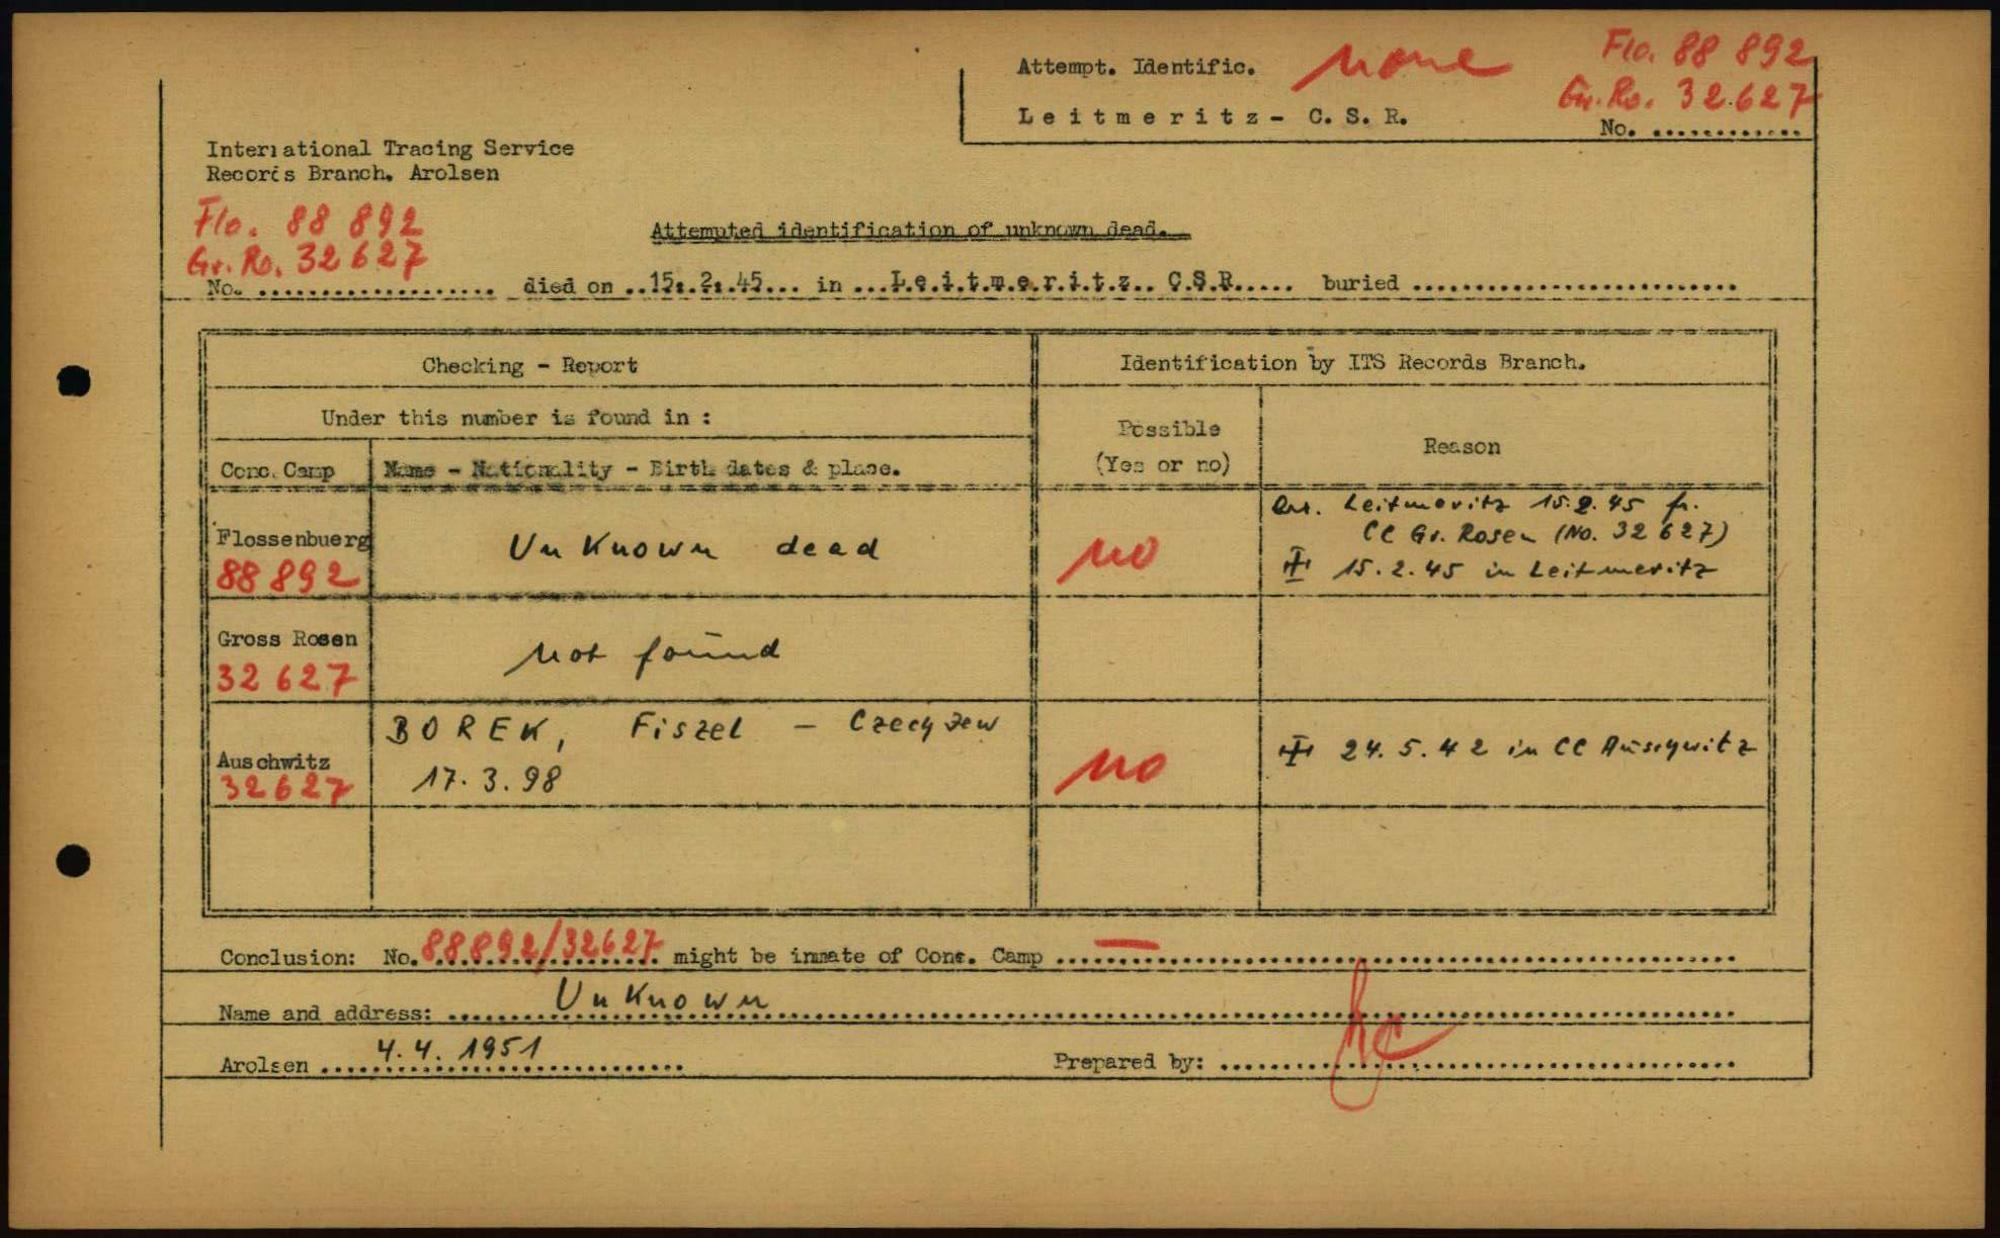 Attempt. Identific. none
Flo. 88 892
Gr. Ro. 32.627
Leitmeritz- C. S. R.
No. .............
International Tracing Service
Records Branch. Arolsen
Flo. 88 892
Gr. Ro. 32 627
Attempted identification of unknown dead.
No. .................... died on ..15.2.45... in ...Leitmeritz.. C.S.R..... buried ............................
Checking - Report
Identification by ITS Records Branch.
Under this number is found in :
Possible
(Yes or no)
Reason
Conc. Camp
Name - Nationality - Birth dates & place.
Flossenbuerg
88 892
Unknown dead
no
Arr. Leitmeritz 15.2.45 fr.
CC Gr. Rosen (No. 32 627)
15.2.45 in Leitmeritz
Gross Rosen
32 627
not found
Auschwitz
32627
BOREK, Fiszel - Czech Jew
17.3.98
no
24.5.42 in CC Auschwitz
Conclusion: No. 88892/32627 might be inmate of Conc. Camp —
Name and address: Unknown
Arolsen 4.4.1951
Prepared by: